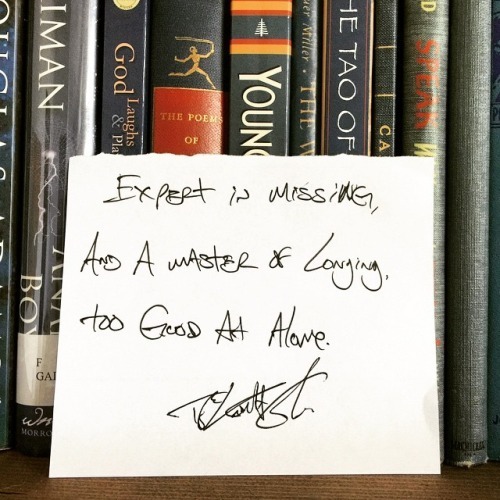 IMAN
God
Laughs
& Pla
THE POEMS
OF
YOUNG
THE TAO OF
CA
SPEAK
BOY
F
GAI
MORRO
Expert in missing,
And A master of Longing,
too Good At Alone.